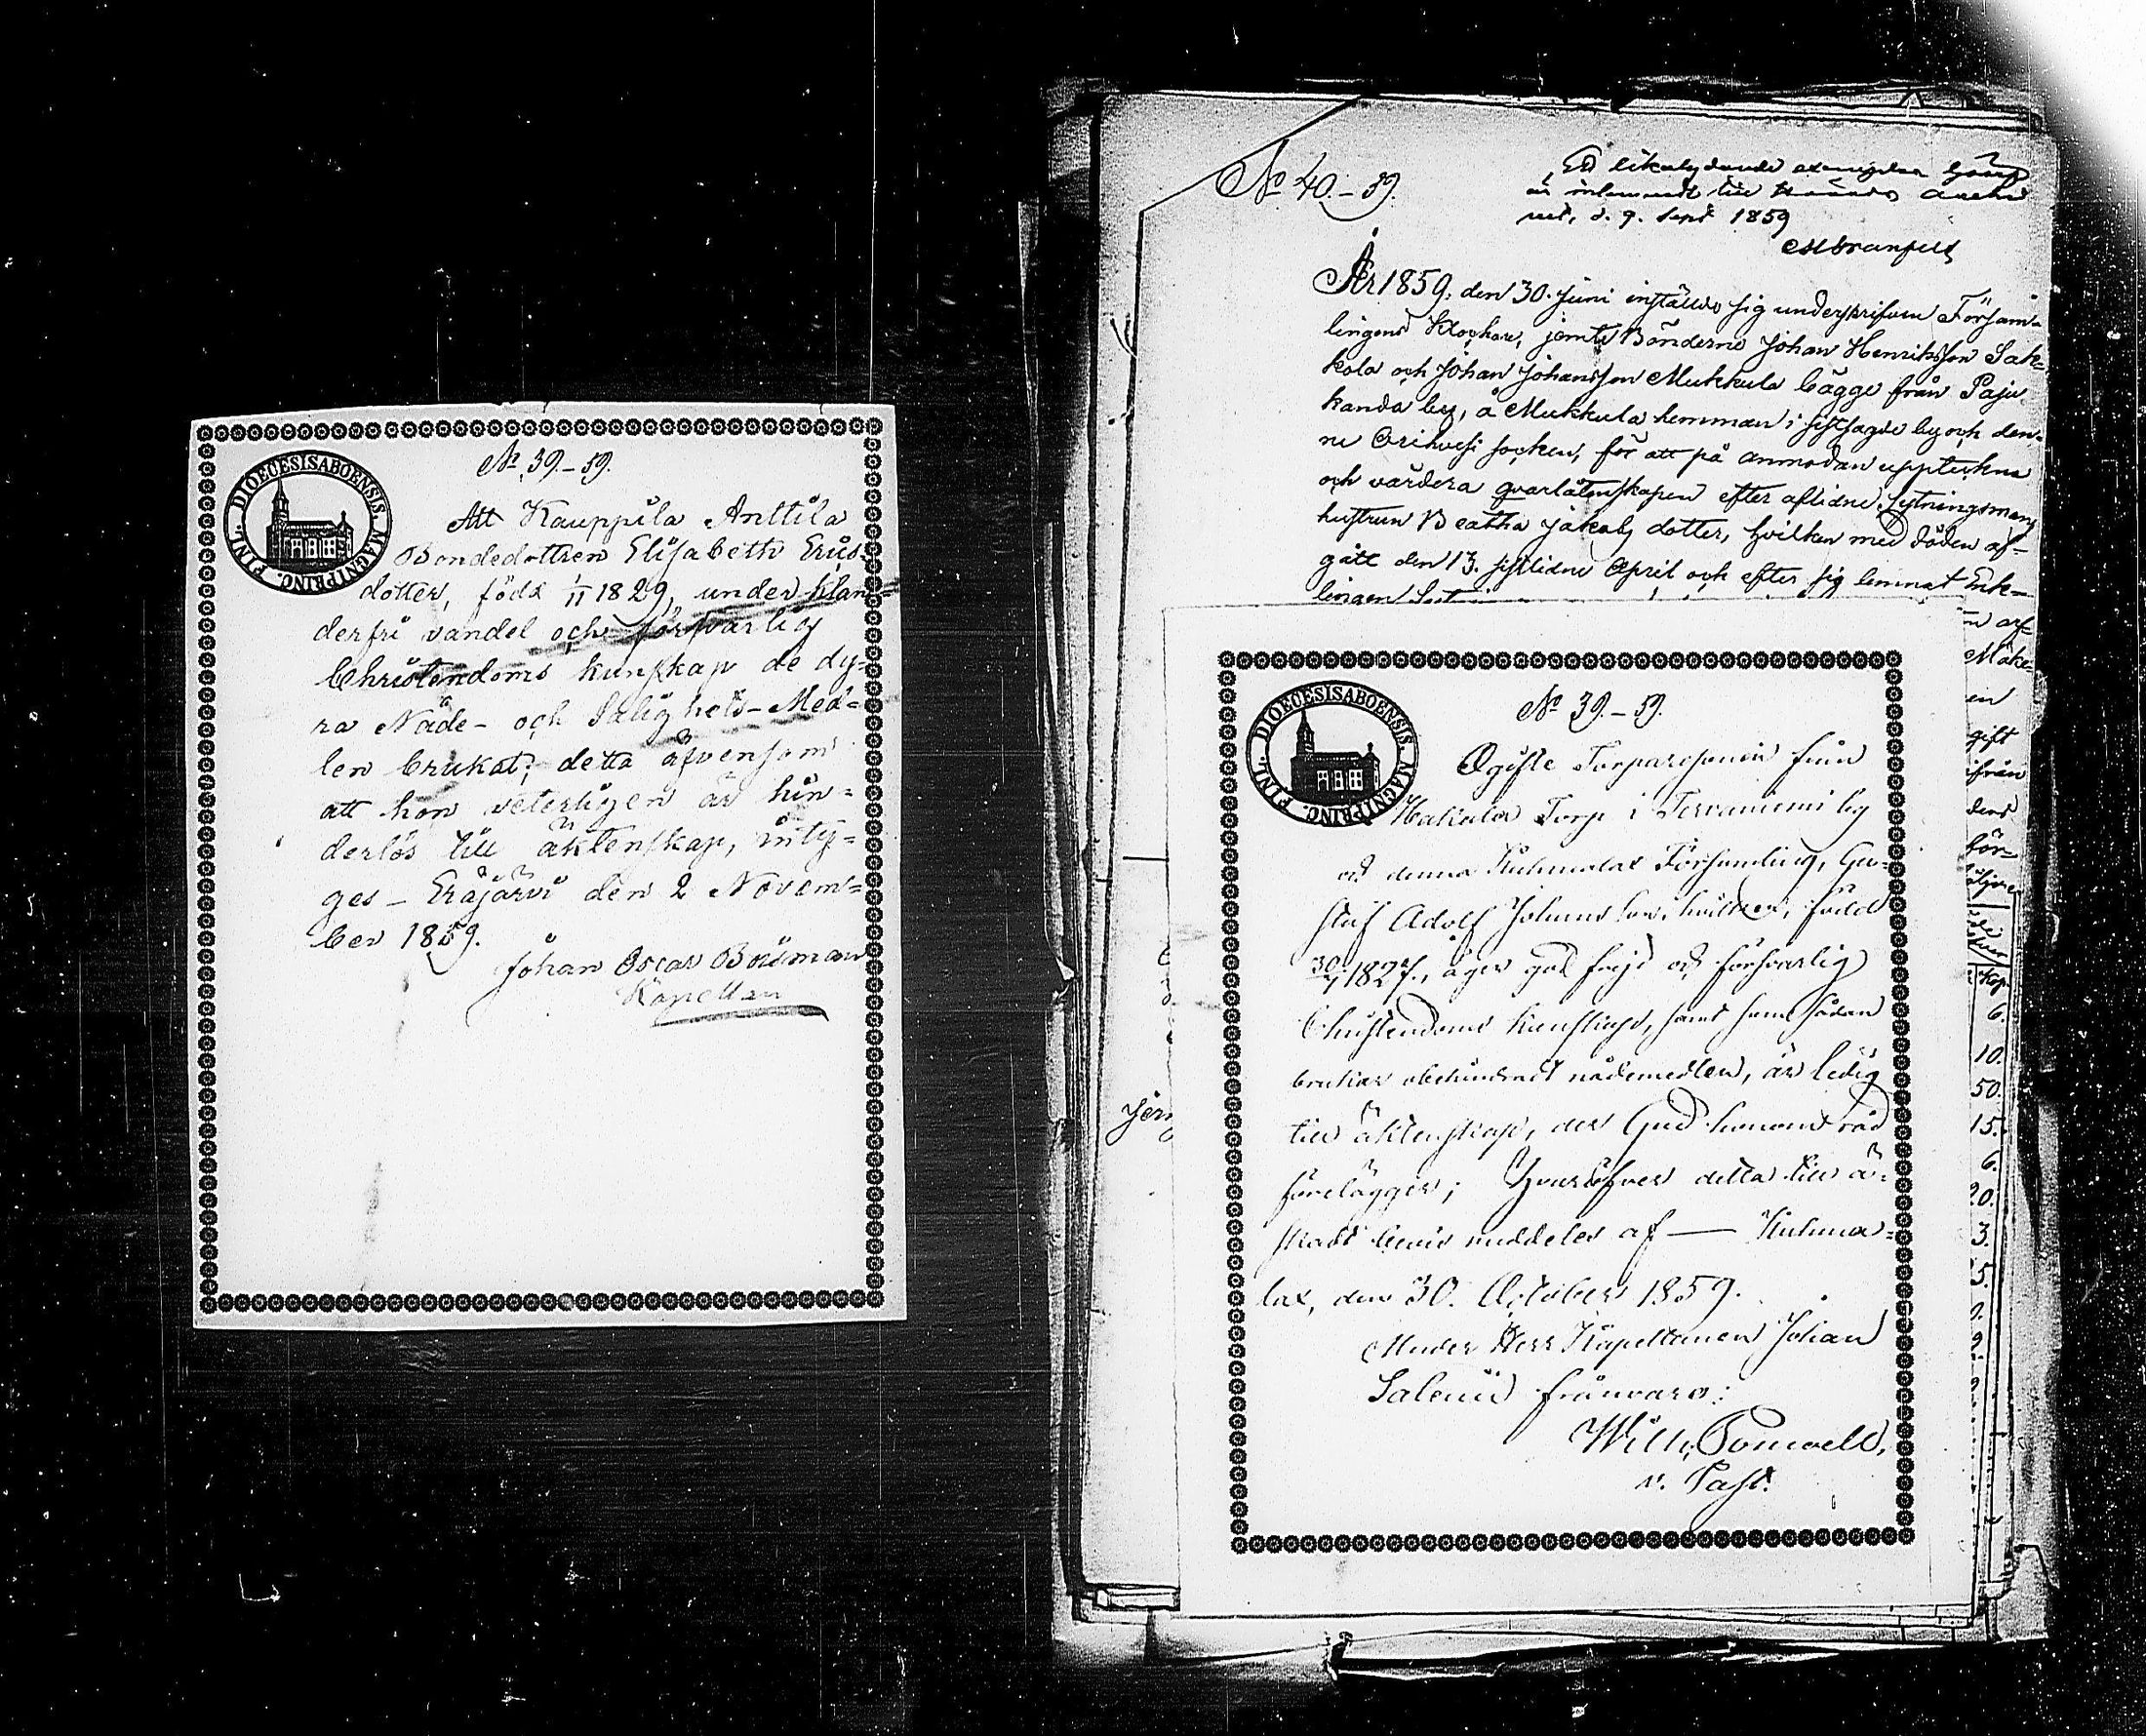 No 39.-59.
DIOECESIS ABOENSIS. MAGNI PRINC. FINL.
Att Kauppila Anttila
Bondedottren Elisabeth Erics
dotter, född 1/11 1829, under klan=
derfri vandel och försvarlig
Christendoms kunskap de dy=
ra Nåde- och Salighets-Med=
len brukat; detta äfvensom
att hon veterligen är hin=
derlös till äktenskap, inty=
ges - Eräjärvi den 2 Novem=
ber 1859.
Johan Oscar
Kapellan
No 40.-59.
Ett likalydande exemplar
är inlemnadt till
d. 9. Sept 1859
År 1859. den 30. Juni inställde sig underskrifven Försam=
lingens Klockare, jemte Bönderne Johan Henriksson Sak=
kola och Johan Johansson Mukkula bägge från Paju
kanda by, å Mukkula hemman i sistsagde by och den=
ne Orihvesi socken, för att på anmodan uppteckna
och värdera qvarlåtenskapen efter aflidne Sytningsmans
hustrun Beatha Jakobs dotter, hvilken med döden af=
gått den 13. sistlidne April och efter sig lemnat Enk=
lingen
arf=
Måhe=
en
gift
ifrån
dens
för=
Kop.
6.
10.
50.
15.
6.
20.
3.
5.
Jern
No 39.-59.
DIOECESIS ABOENSIS. MAGNI PRINC. FINL.
Ogifte Torparesonen från
Hakala Torp i Tervaniemi by
och denna Kuhmalax Församling, Gu=
staf Adolf Johansson, hvilken, född
30/7 1827., äger god frejd och försvarlig
Christendoms kunskap, samt som sådan
brukar obehindradt nådemedlen, är ledig
till äktenskap, der Gud honom råd
förelägger; Hvaröfver detta till ä=
skadt bevis meddeles af — Kuhma=
lax, den 30. October 1859.
Under Herr Kapellanen Johan
Salenii frånvaro:
Wilh.
v. Past.